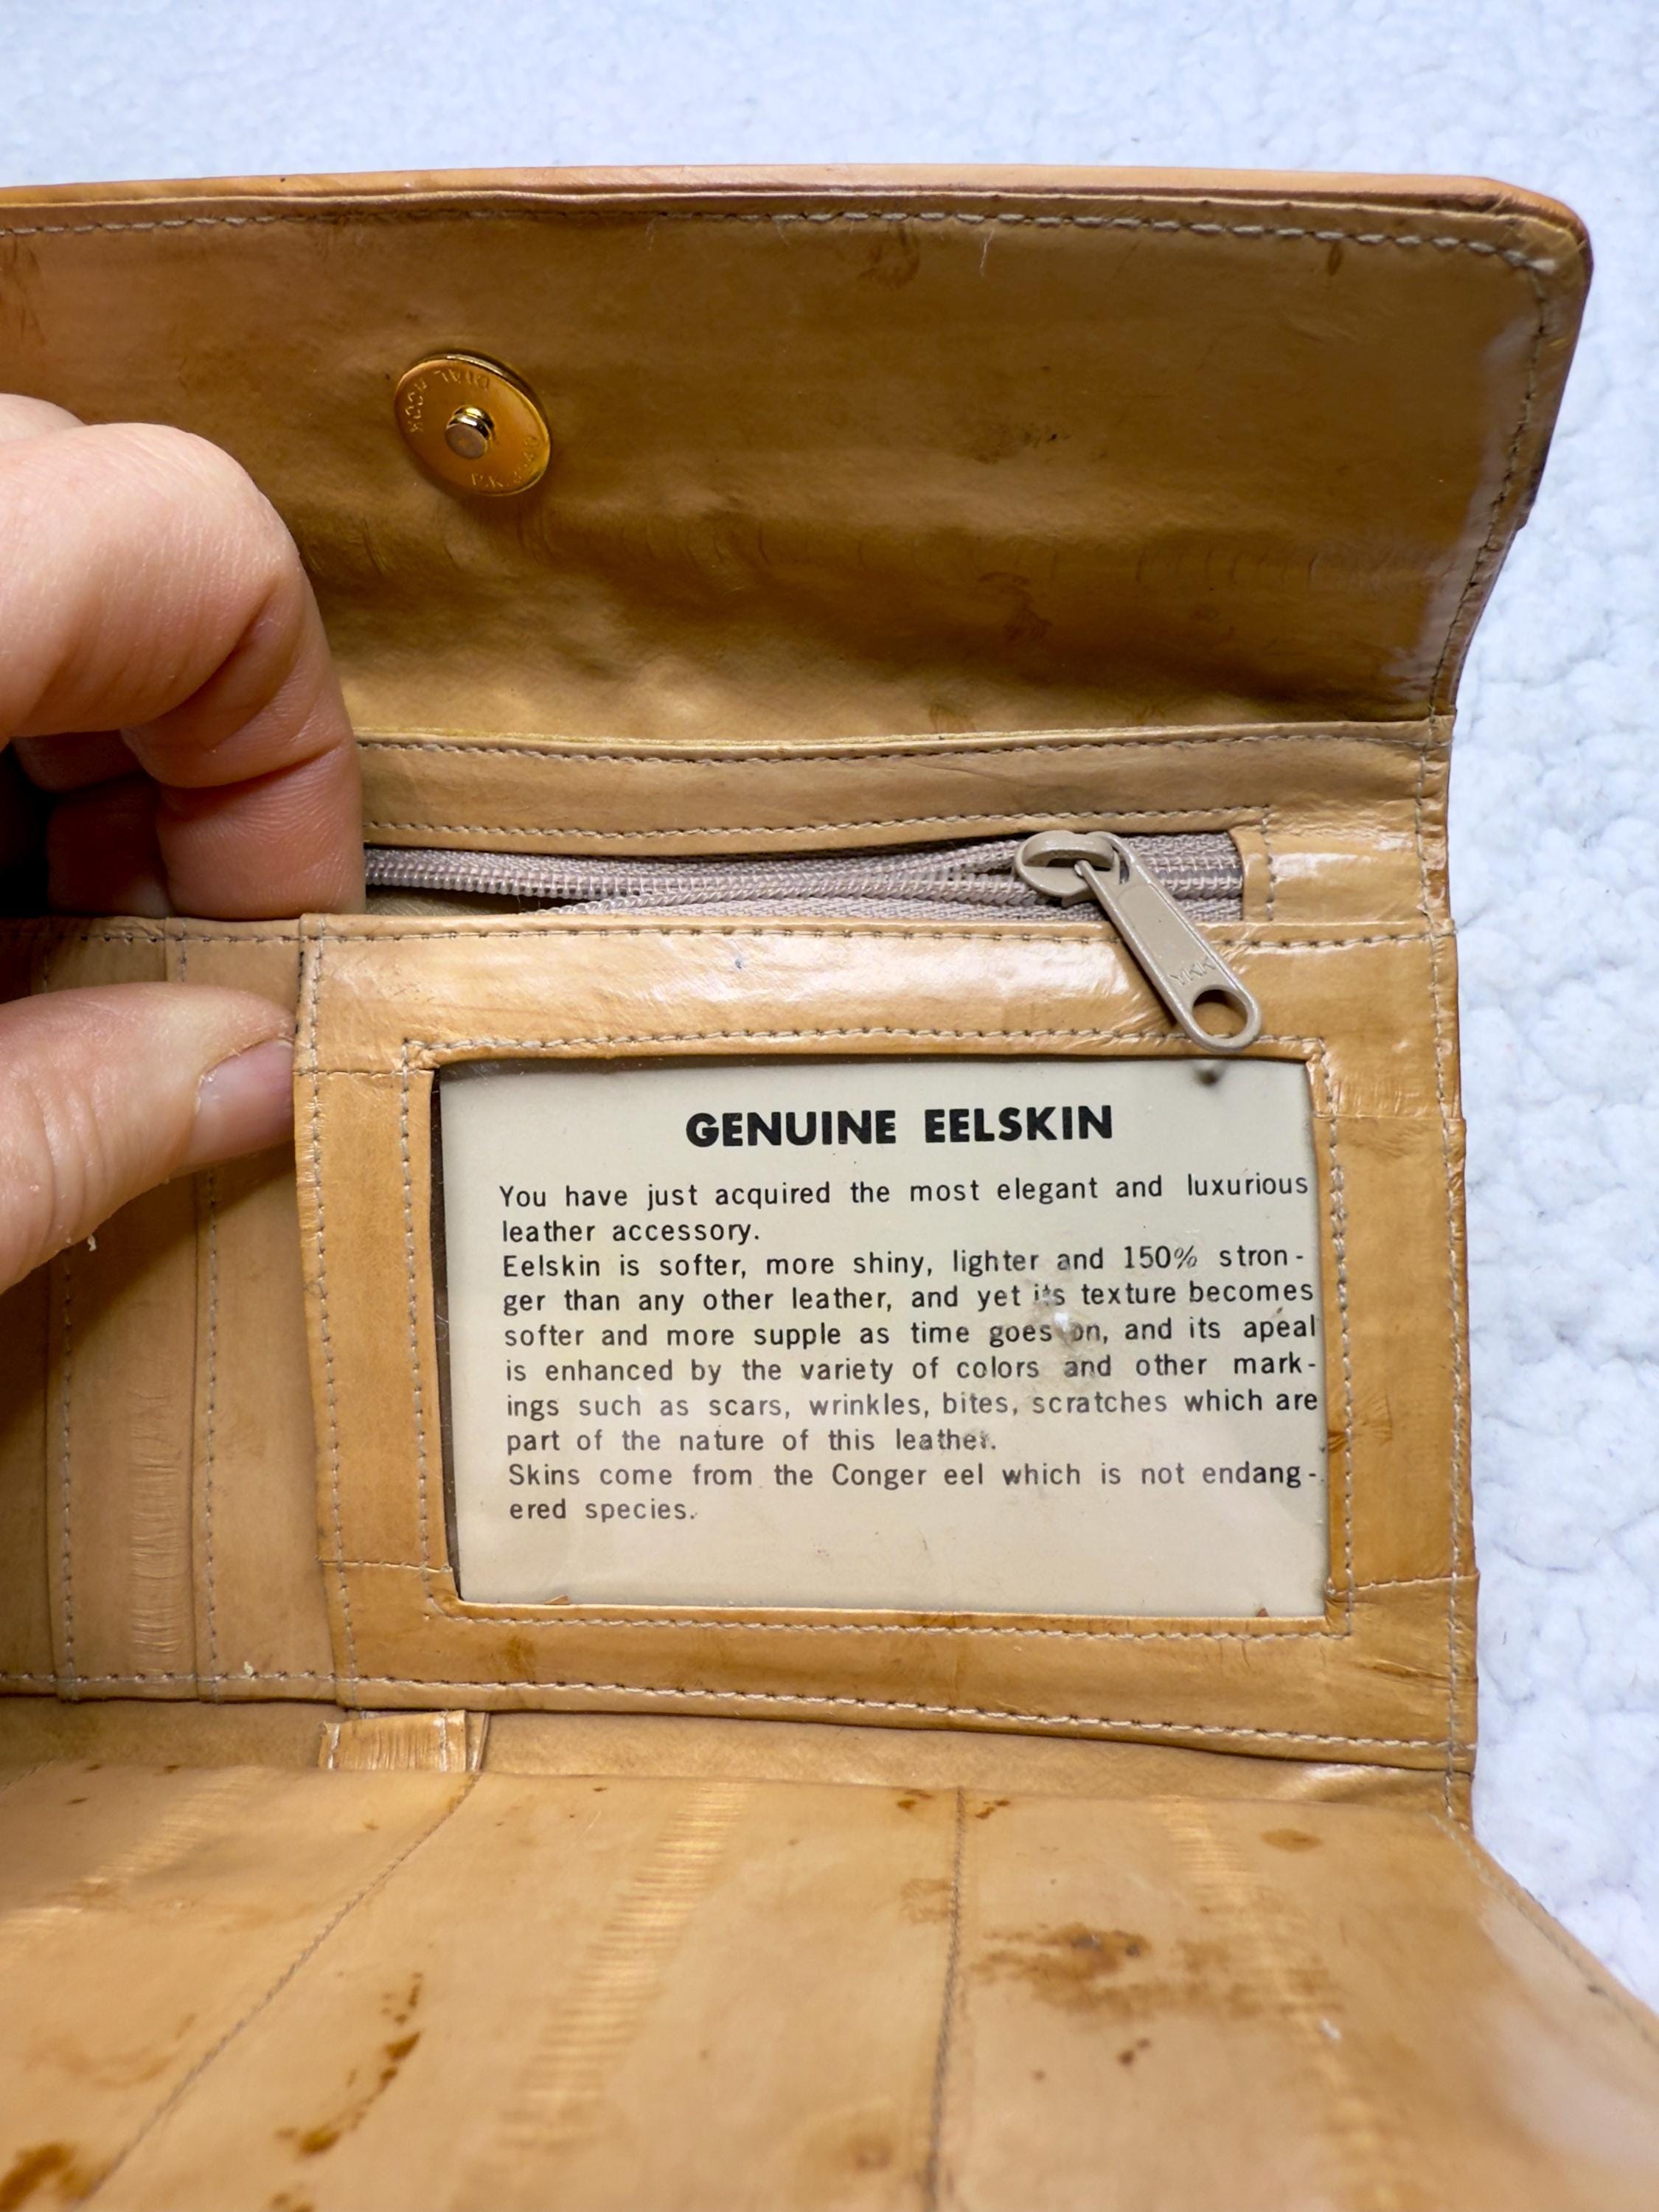 DUAL LOCK
YKK
GENUINE EELSKIN
You have just acquired the most elegant and luxurious
leather accessory.
Eelskin is softer, more shiny, lighter and 150% stron-
ger than any other leather, and yet its texture becomes
softer and more supple as time goes on, and its apeal
is enhanced by the variety of colors and other mark-
ings such as scars, wrinkles, bites, scratches which are
part of the nature of this leather.
Skins come from the Conger eel which is not endang-
ered species.